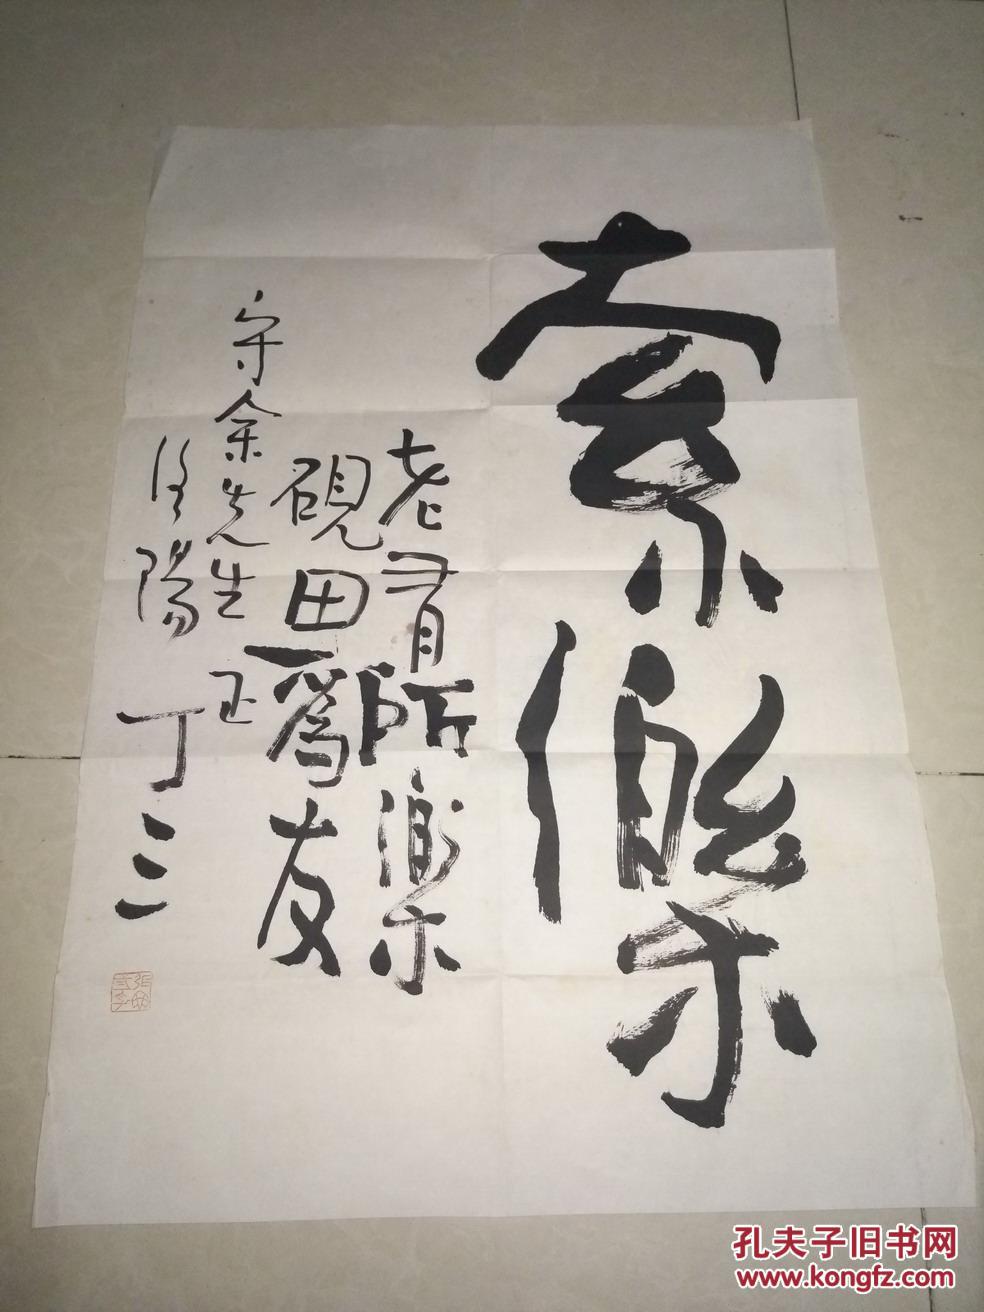 索樂
老有所樂
硯田為友
守余先生正
洛陽 丁三
孔夫子旧书网
www.kongfz.com